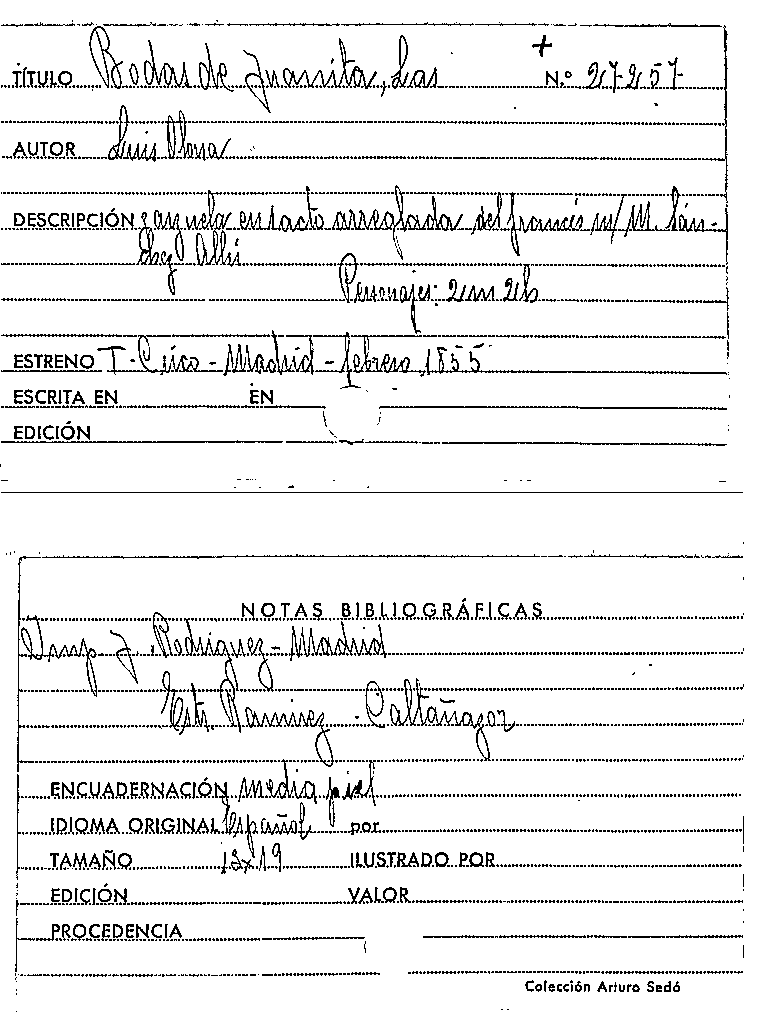 +
TÍTULO Bodas de Juanita, Las N.º 27257
AUTOR Luis Olona
DESCRIPCIÓN zarzuela en 1 acto arreglada del francés m/ M. Sán-
chez Allú
Personajes: 2m 2h
ESTRENO T. Circo - Madrid - febrero, 1855
ESCRITA EN EN
EDICIÓN
NOTAS BIBLIOGRÁFICAS
Imp. J. Rodriguez - Madrid
Estr. Ramirez - Caltañazor
ENCUADERNACIÓN media piel
IDIOMA ORIGINAL Español por
TAMAÑO 13x19 ILUSTRADO POR
EDICIÓN VALOR
PROCEDENCIA
Colección Arturo Sedó